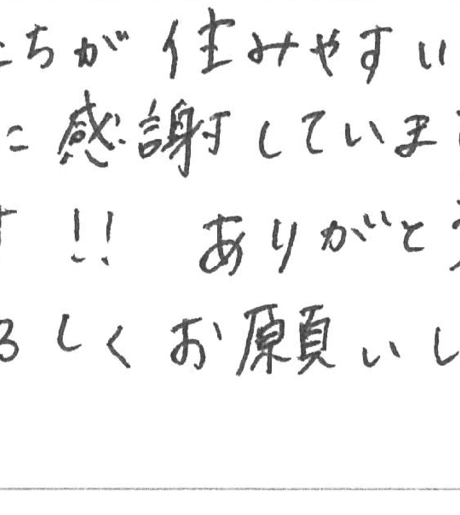 ちが 住みやすい
に 感謝していま
す !! ありがと
ろしくお願いし